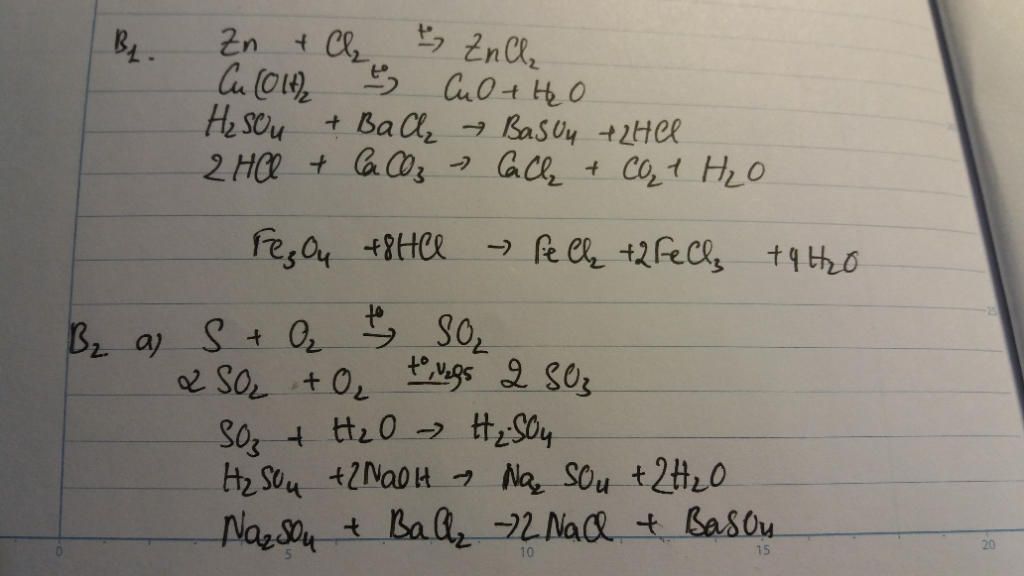 B1. Zn + Cl2 t°→ ZnCl2
Cu(OH)2 t°→ CuO + H2O
H2SO4 + BaCl2 → BaSO4 + 2HCl
2HCl + CaCO3 → CaCl2 + CO2 + H2O
Fe3O4 + 8HCl → FeCl2 + 2FeCl3 + 4H2O
B2 a) S + O2 t°→ SO2
2SO2 + O2 t°, V2O5 2SO3
SO3 + H2O → H2SO4
H2SO4 + 2NaOH → Na2SO4 + 2H2O
Na2SO4 + BaCl2 → 2NaCl + BaSO4
0 5 10 15 20
25